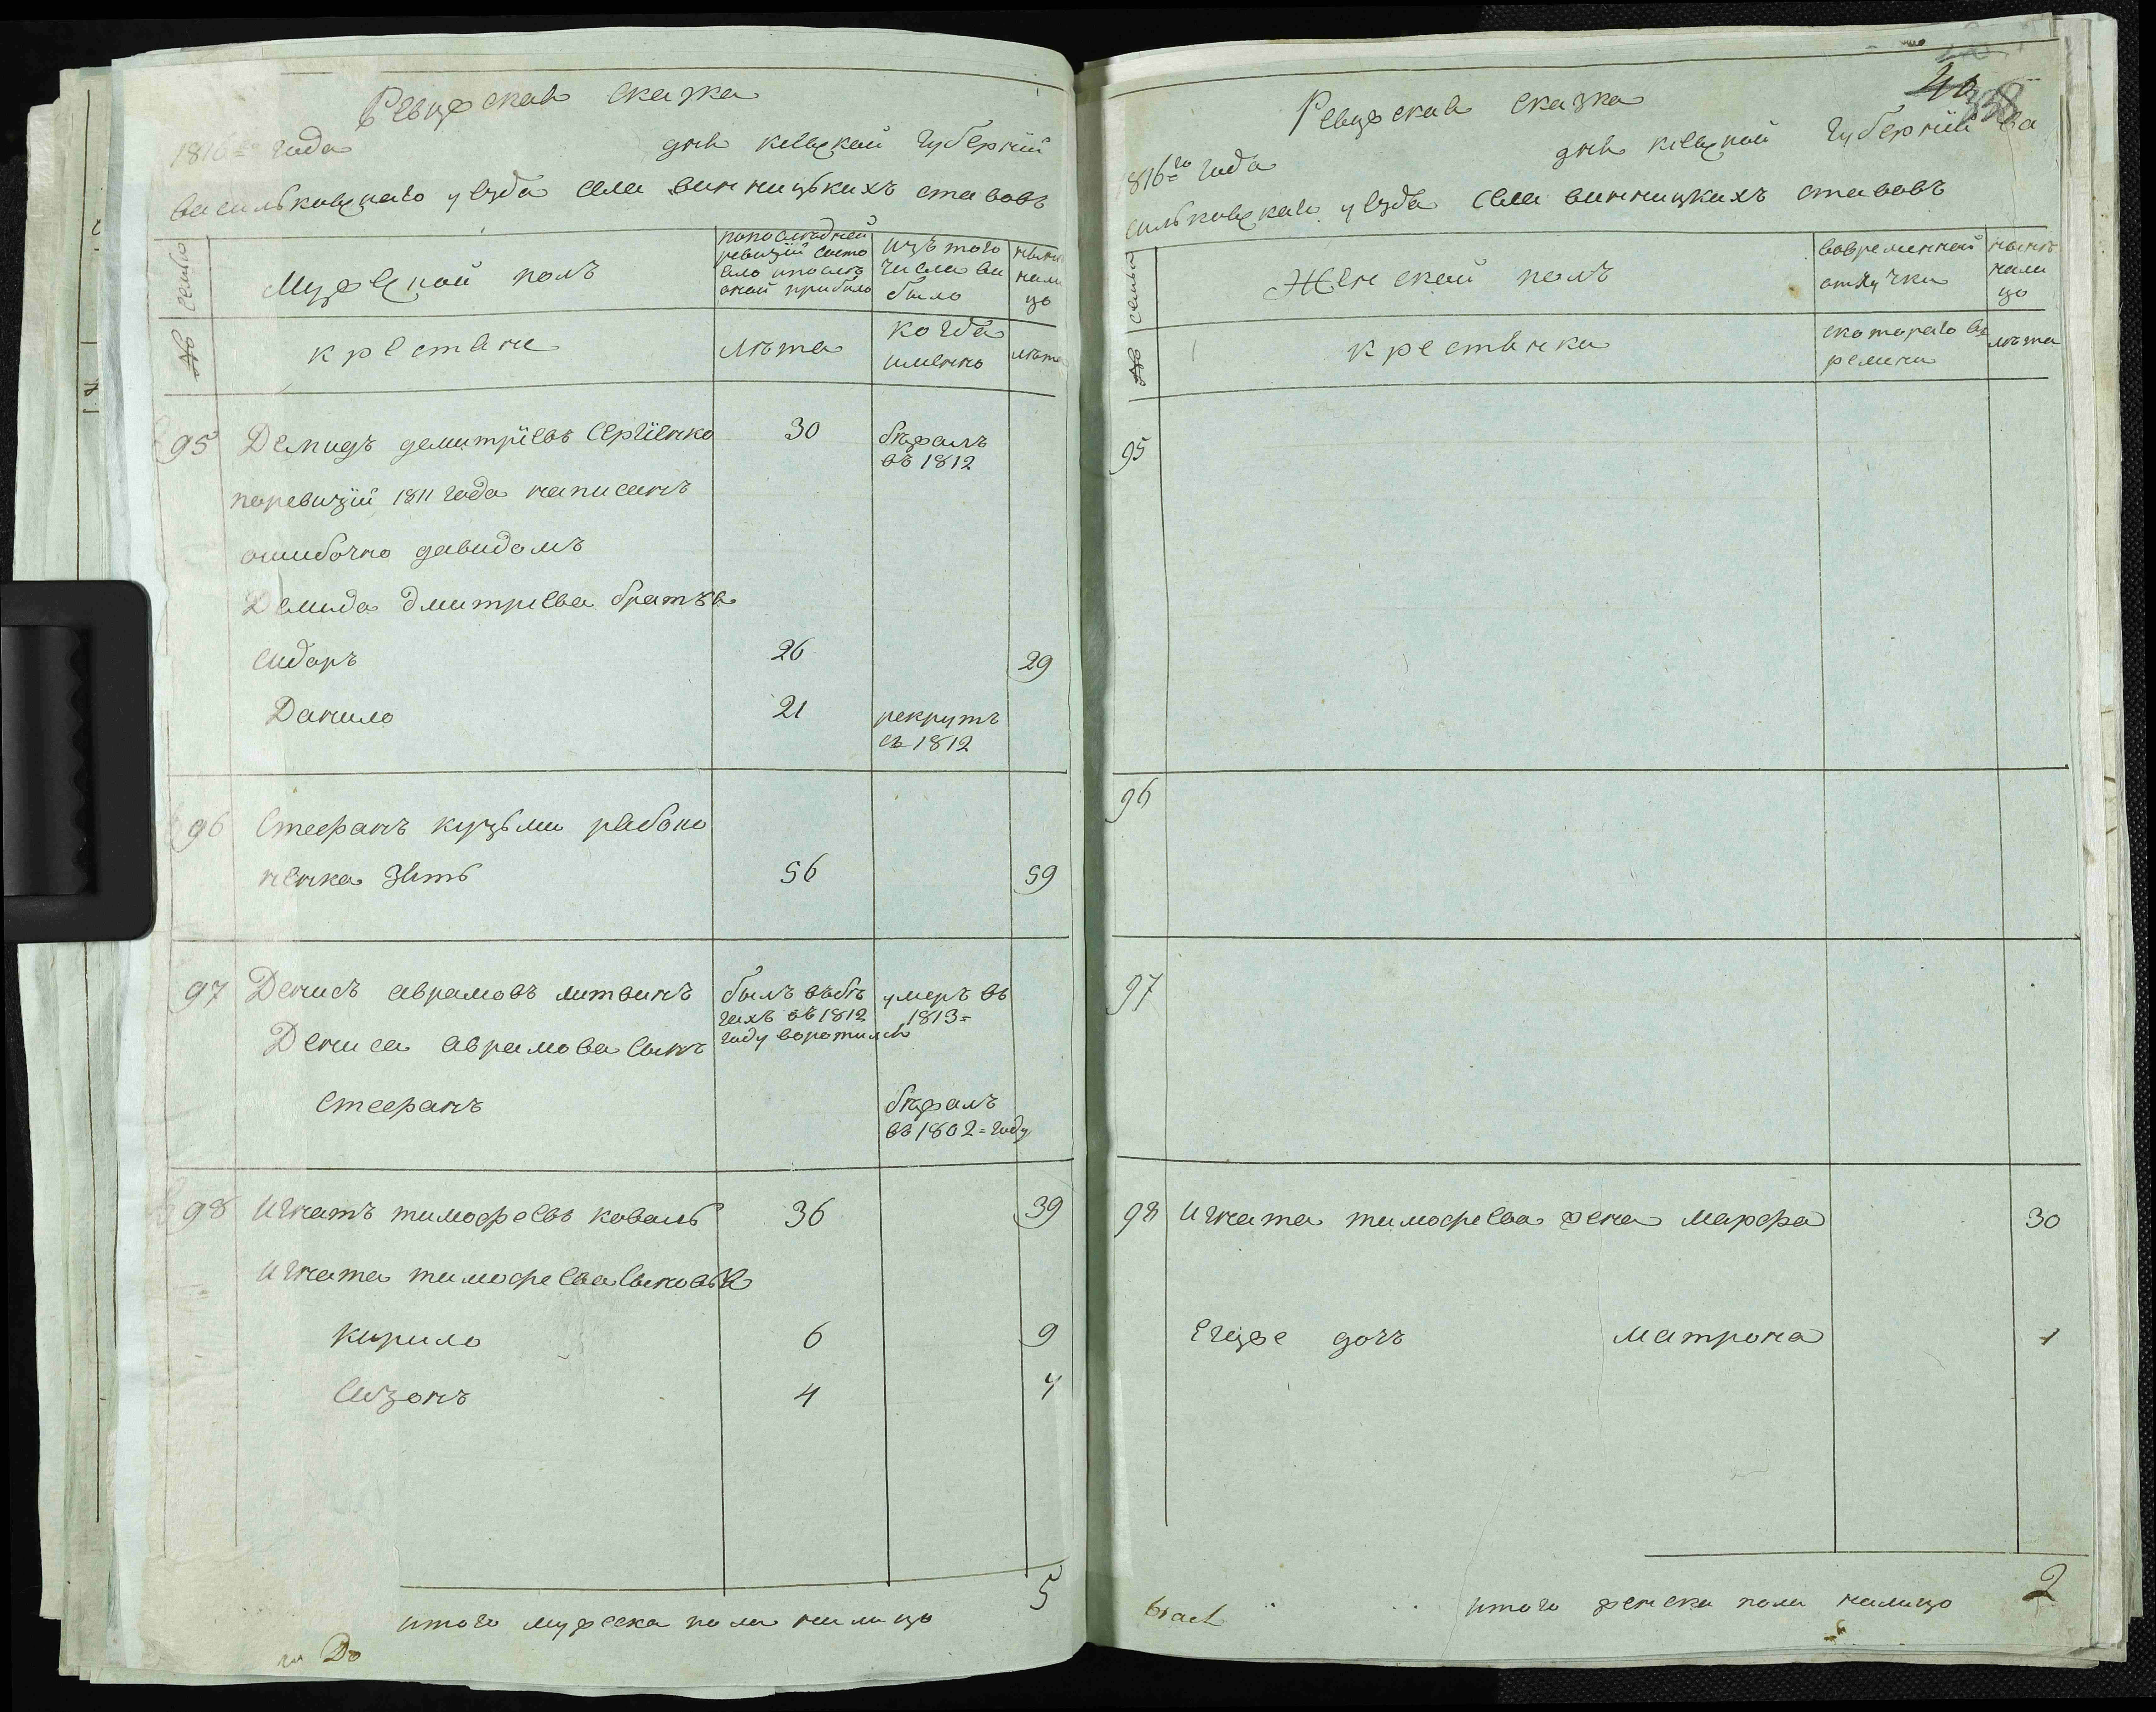 Ревизская сказка
1816го года дня киевской губернии
васильковскаго уезда села винницкихъ ставовъ
№ семьи
Мужеской полъ
попоследней ревизии состояло ипосле оной прибыло
изъ того числа выбыло
ныне налицо
крестьяне
лета
когда именно
лета
95 Демидъ демитриевъ Сергиенко 30 бежалъ въ 1812
поревизии 1811 года написанъ
ошибочно давидомъ
Демида дмитриева братья
Сидоръ 26 29
Данило 21 рекрутъ въ 1812
96 Стефанъ кузьмы рабоко
ненка зять 56 59
97 Денисъ аврамовъ литвинъ былъ въбегахъ въ 1812 году воротился умеръ въ 1813
Дениса аврамова сынъ
Стефанъ бежалъ въ 1802 году
98 Игнатъ тимофеевъ коваль 36 39
Игната тимофеева сыновья
Кирило 6 9
Сизонъ 4 7
итого мужеска пола налицо 5
Ревизская сказка
1816го года дня киевской губернии ва
сильковскаго уезда села винницкихъ ставовъ
№ семьи
Женской полъ
вовременной отлучки
ныне налицо
крестьянки
скотораго времени
лета
95
96
97
98 Игната тимофеева жена Марфа 30
Егоже дочъ Матрона 1
итого женска пола налицо 2